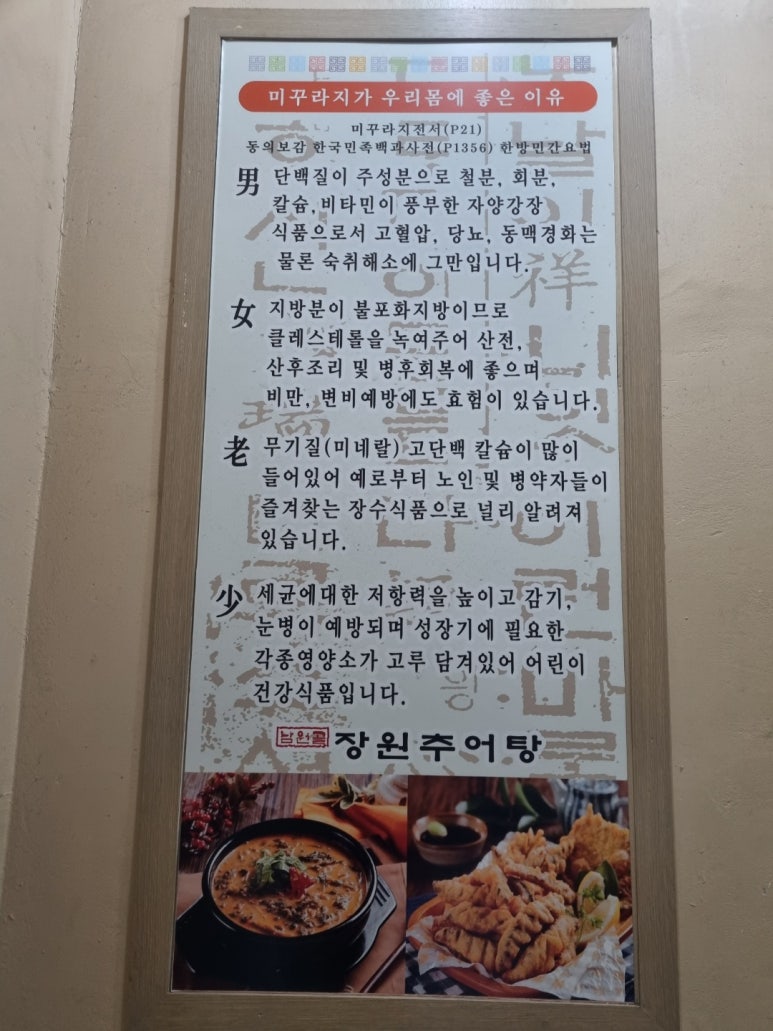 미꾸라지가 우리몸에 좋은 이유
미꾸라지전서(P21)
동의보감 한국민족백과사전(P1356) 한방민간요법
男 단백질이 주성분으로 철분, 회분,
칼슘, 비타민이 풍부한 자양강장
식품으로서 고혈압, 당뇨, 동맥경화는
물론 숙취해소에 그만입니다.
女 지방분이 불포화지방이므로
클레스테롤을 녹여주어 산전,
산후조리 및 병후회복에 좋으며
비만, 변비예방에도 효험이 있습니다.
老 무기질(미네랄) 고단백 칼슘이 많이
들어있어 예로부터 노인 및 병약자들이
즐겨찾는 장수식품으로 널리 알려져
있습니다.
少 세균에대한 저항력을 높이고 감기,
눈병이 예방되며 성장기에 필요한
각종영양소가 고루 담겨있어 어린이
건강식품입니다.
남원골 장원추어탕